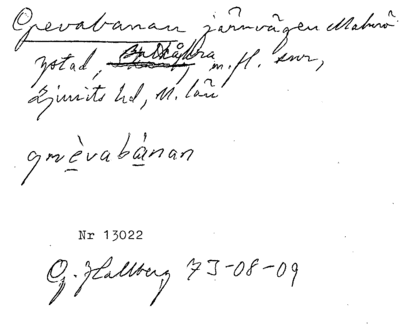 Grevabanan järnvägen Malmö
Ystad, Balkåkra m.fl. snr,
Ljunits hd, M. län
grèvabànan
Nr 13022
G. Hallberg 73-08-09